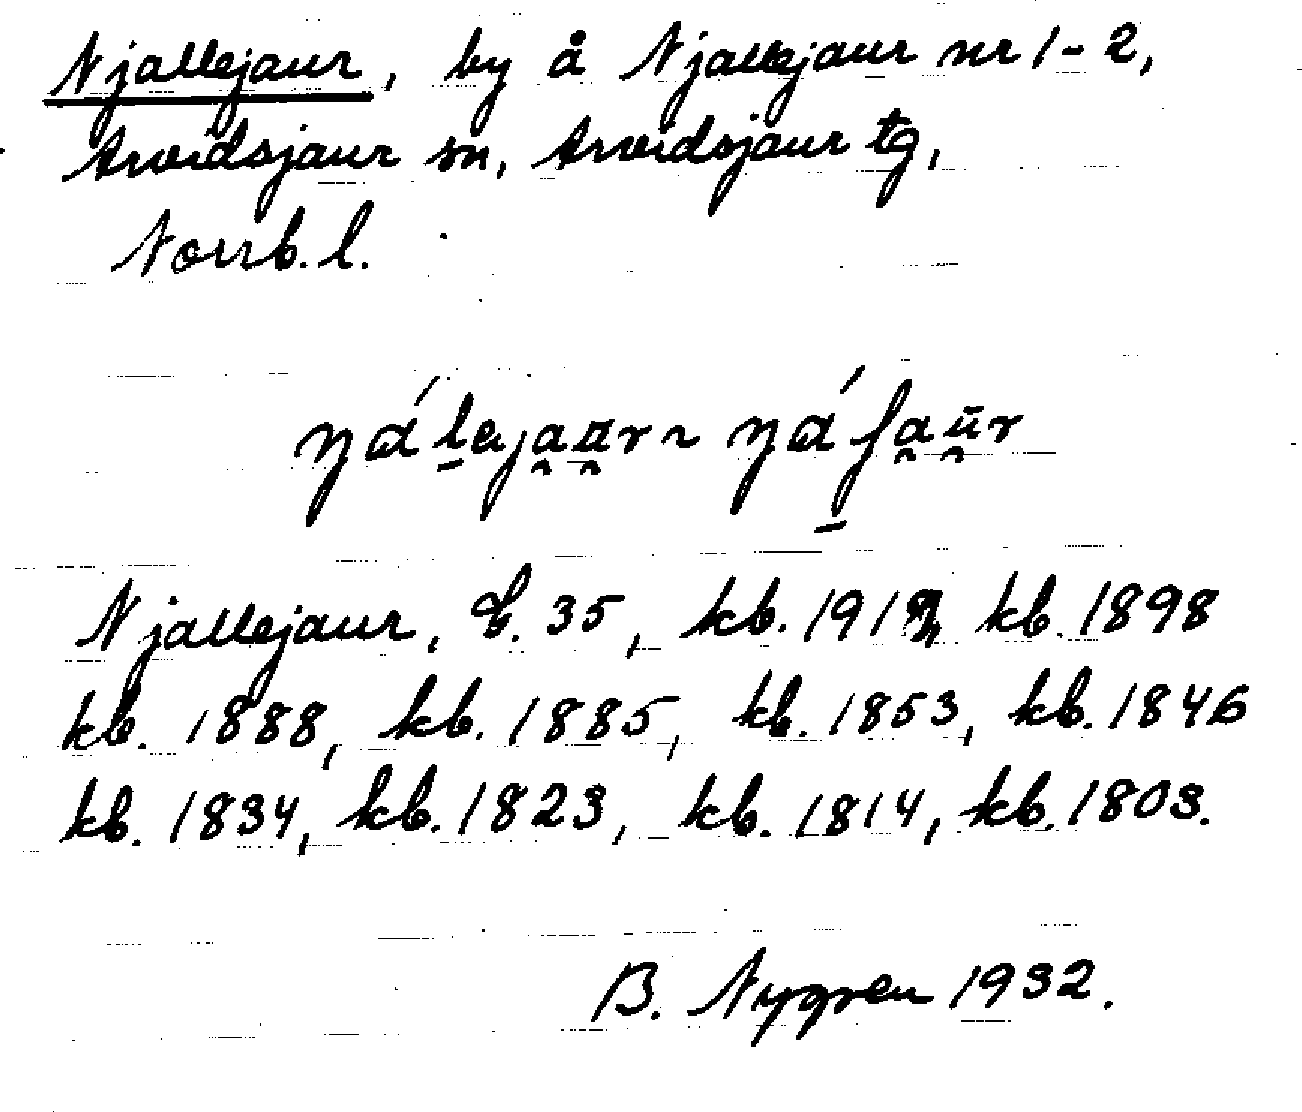 Njallejaur, by å Njallejaur nr 1-2,
Arvidsjaur sn, Arvidsjaur tg,
Norrb. l.
Njallejaur, E. 35, kb. 1898
kb. 1888, kb. 1885, kb. 1853, kb. 1846
kb. 1834, kb. 1823, kb. 1814, kb. 1803.
B. Nygren 1932.